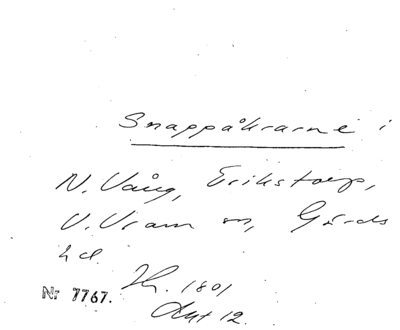 Snappåkrarne i
N. Vång, Erikstorp,
V. Vram m, Gärds
hd.
Nr 7767.
1801
Akt 12.